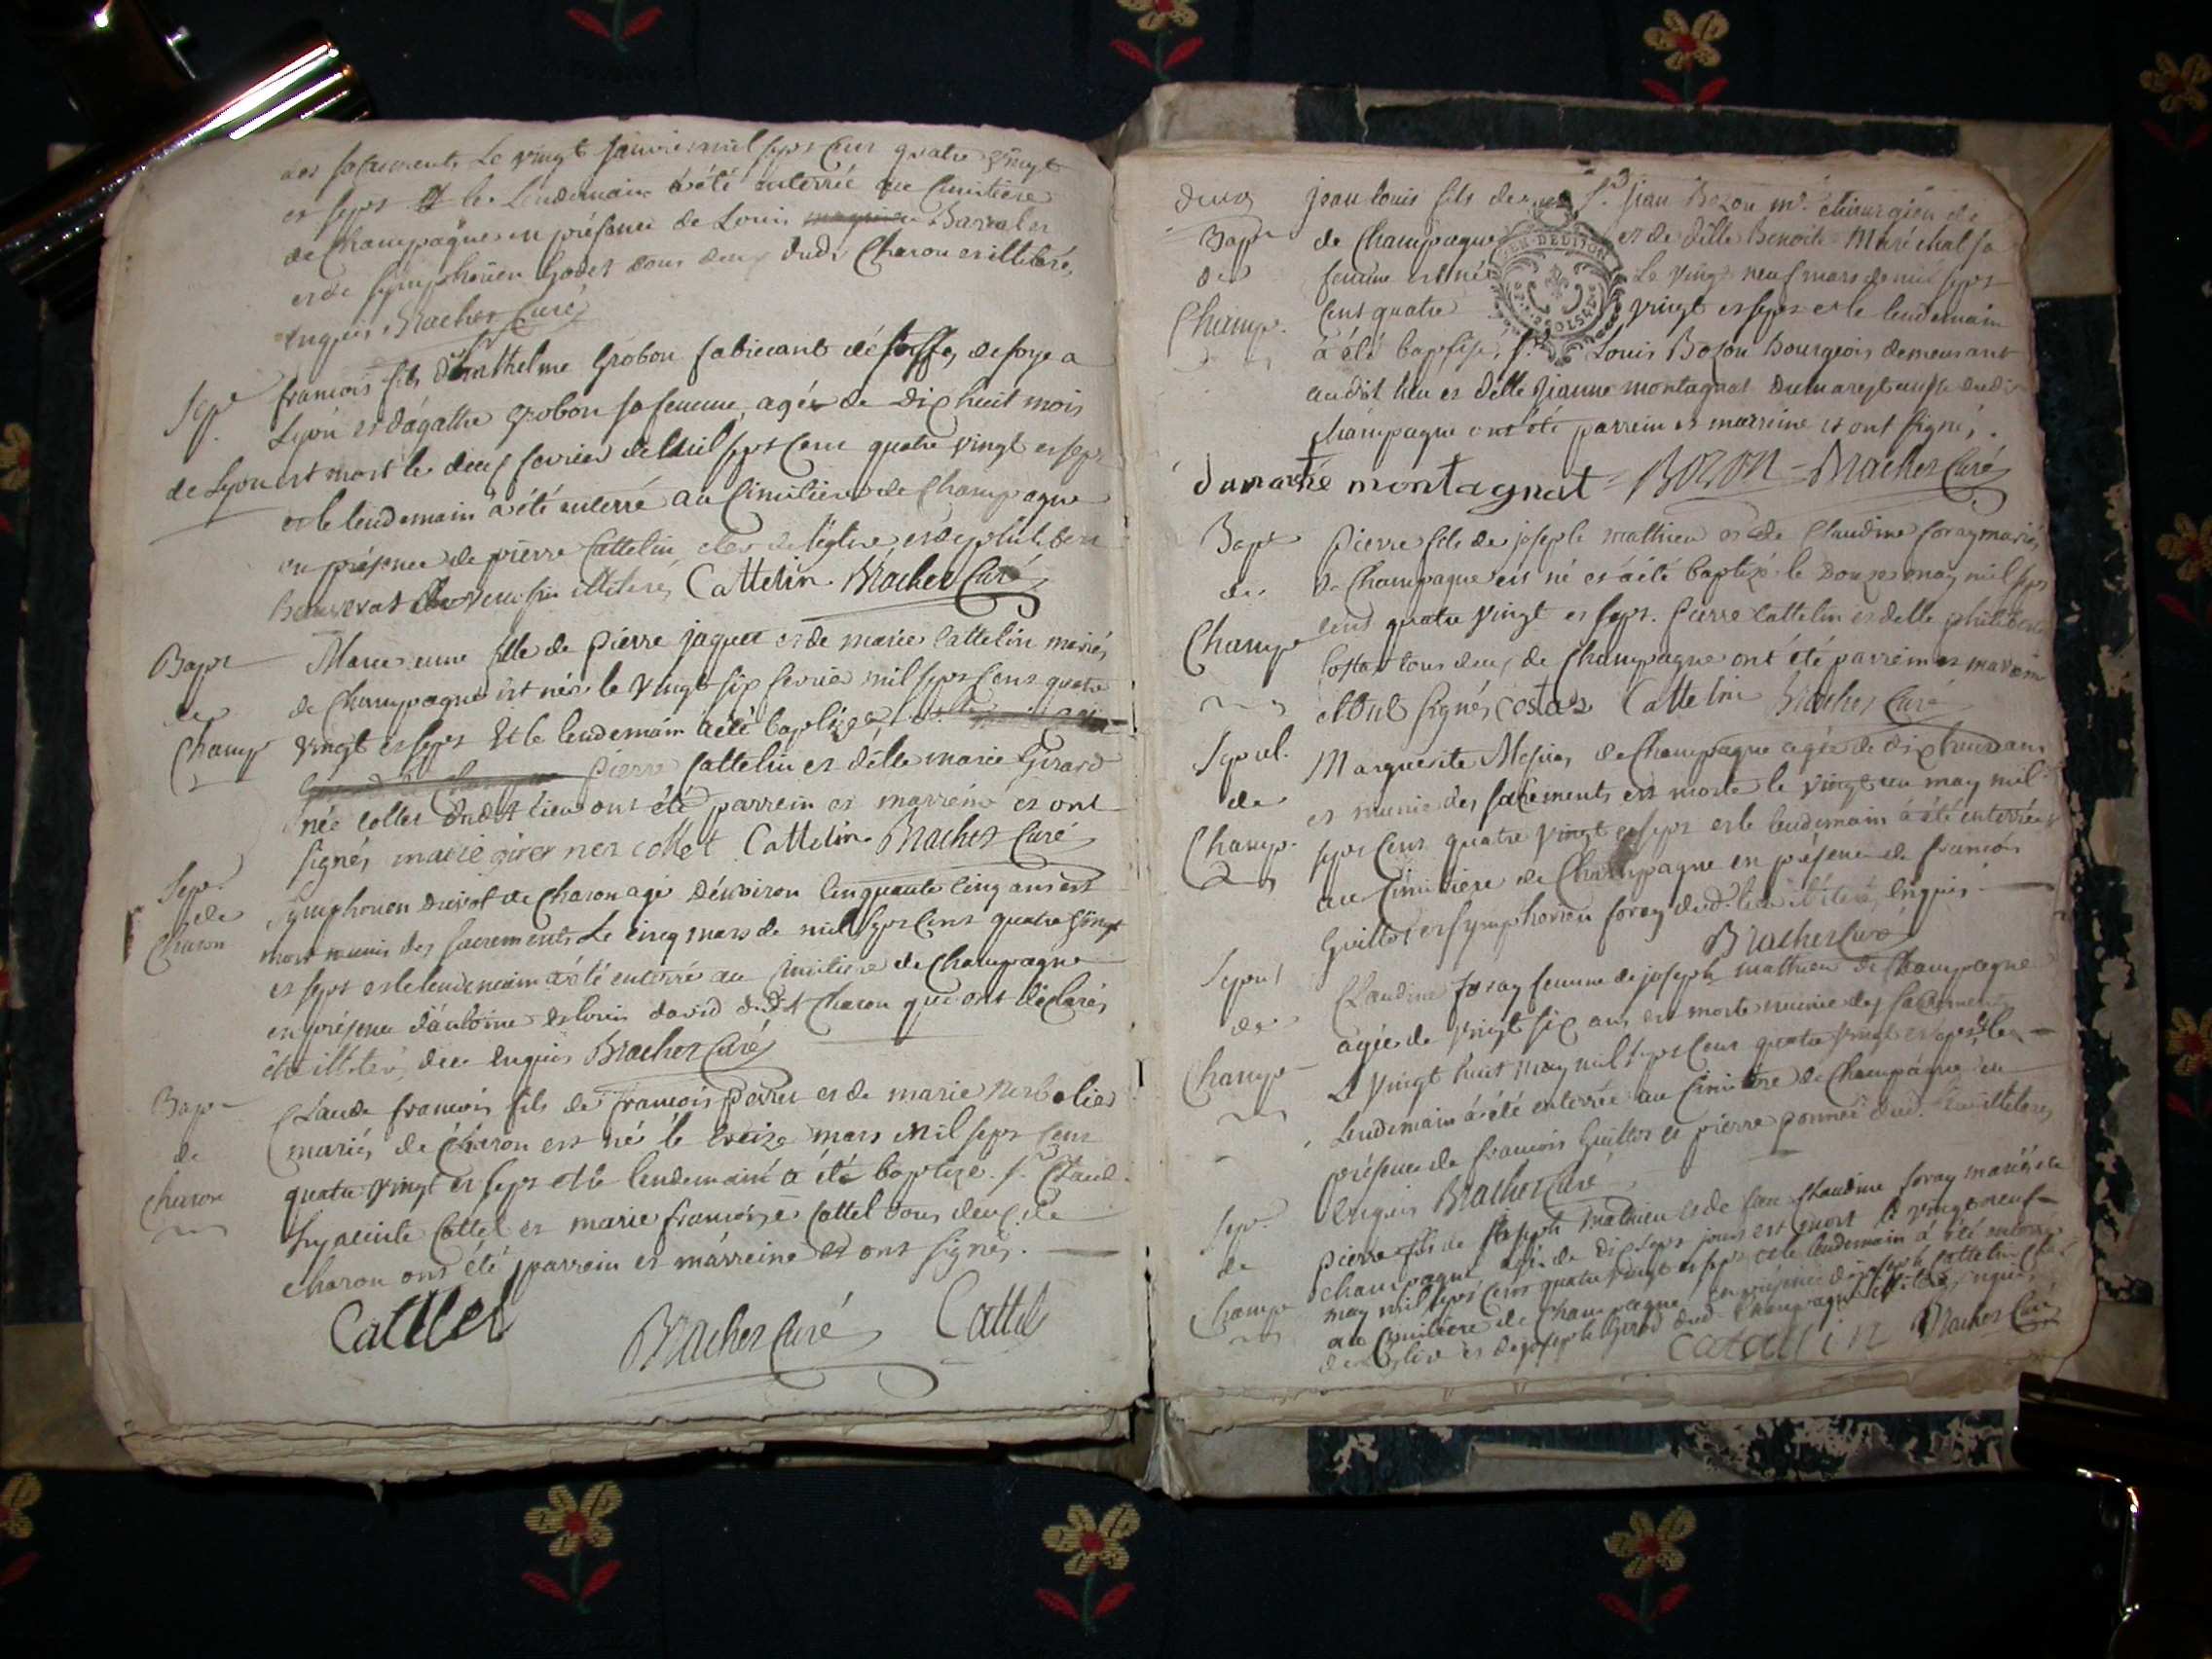 des sacrements le vingt janvier mil sept cent quatre vingt
et sept et le lendemain a été enterrée au cimitiere
de Champagne en présence de Louis Barralet
et de symphorien Godet tous deux dudt Charon et illiteré,
enquis. Brachet Curé
Sep.
francois fils d'anthelme Grobon fabricant d'étoffes de soye a
Lyon et d'agathe Grobon sa femme, agée de dix huit mois
de Lyon est mort le deux fevrier de mil sept cent quatre vingt et sept
et le lendemain a été enterré au Cimitiere de Champagne
en présence de pierre Cattelin clerc de l'église et de philibert
illiteré, Cattelin Brachet Curé
Bapt
de
Champ
Marie fille de Pierre jaquet et de marie Cattelin mariés
de Champagne est née le vingt six fevrier mil sept cent quatre
vingt et sept et le lendemain a été baptisée,
pierre Cattelin et delle marie Girard
née Collet dudt lieu ont été parrein et marreine et ont
signés, marie girer nee collet Cattelin Brachet Curé
Sep.
de
Charon
Symphorien de Charon agé d'environ cinquante cinq ans est
mort munis des sacrements le cinq mars de mil sept cent quatre vingt
et sept et le lendemain a été enterré au Cimitiere de Champagne
en présence d'antoine et louis david dudt Charon qui ont déclarés
être illiteré, de ce enquis Brachet Curé
Bapt
de
charon
Claude francois fils de francois perret et de marie
mariés de Charon est né le treize mars mil sept cent
quatre vingt et sept et le lendemain a été baptizé. sr Claud.
hyacinte Cattel et marie francoise Cattel tous deux de
charon ont été parrein et marreine et ont signés.
Cattel Brachet Curé Cattel
deux
Bapt
de
Champ.
jean louis fils de sr jean Bozon me. chirurgien de
de Champagne et de delle Benoite Maréchal sa
femme est né le vingt neuf mars de mil sept
cent quatre vingt et sept et le lendemain
a été baptisé, sr Louis Bozon Bourgeois demeurant
audit lieu et delle jeanne montagnat dumarest dudt
champagne ont été parrein et marreine et ont signés.
montagnat Bozon Brachet Curé
Bapt
de
Champ
Pierre fils de joseph mathieu et de Claudine foray mariés
de Champagne est né et a été baptizé le douze may mil sept
cent quatre vingt et sept. Pierre Cattelin et delle philiberte
Costaz tous deux de Champagne ont été parrein et marreine
et ont signés Costaz Cattelin Brachet Curé
Sepul.
de
Champ.
Marguerite de Champagne agée de dix huit ans
et munie des sacrements est morte le vingt un may mil
sept cent quatre vingt et sept et le lendemain a été enterrée
au Cimitiere de Champagne en présence de francois
Guillot et symphorien foray dudt lieu illiteré, enquis
Brachet Curé
Sepul
de
Champ
Claudine foray femme de joseph mathieu de Champagne
agée de vingt six ans est morte munie des sacrements
le vingt huit may mil sept cent quatre vingt et sept et le
lendemain a été enterrée au Cimitiere de Champagne en
présence de francois Guillot et pierre dud. lieu illiteré,
enquis Brachet Curé
Sep.
de
Champ
pierre fils de joseph mathieu et de feu Claudine foray mariés de
champagne agé de dix sept jours est mort le vingt neuf
may mil sept cent quatre vingt et sept et le lendemain a été enterré
au Cimitiere de Champagne en présence de joseph Cattelin
de l'église et de joseph dud. Champagne illiteré, enquis,
Catallin Brachet Curé